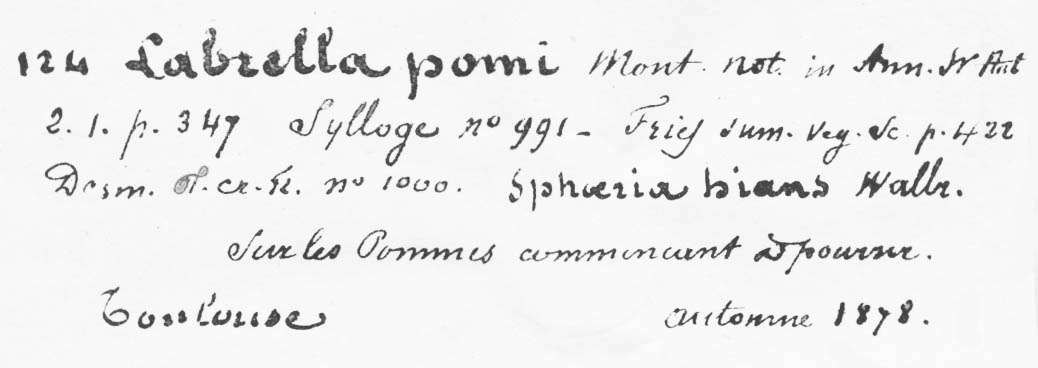 124 Labrella pomi Mont. not. in Ann. Sc. Nat
2. 1. p. 347 Sylloge no 991 - Fries sum. veg. Sc. p. 422
Desm. Pl. cr. Fr. no 1000. Sphæria hians Wallr.
Sur les Pommes commencant à pourrir.
Toulouse automne 1878.